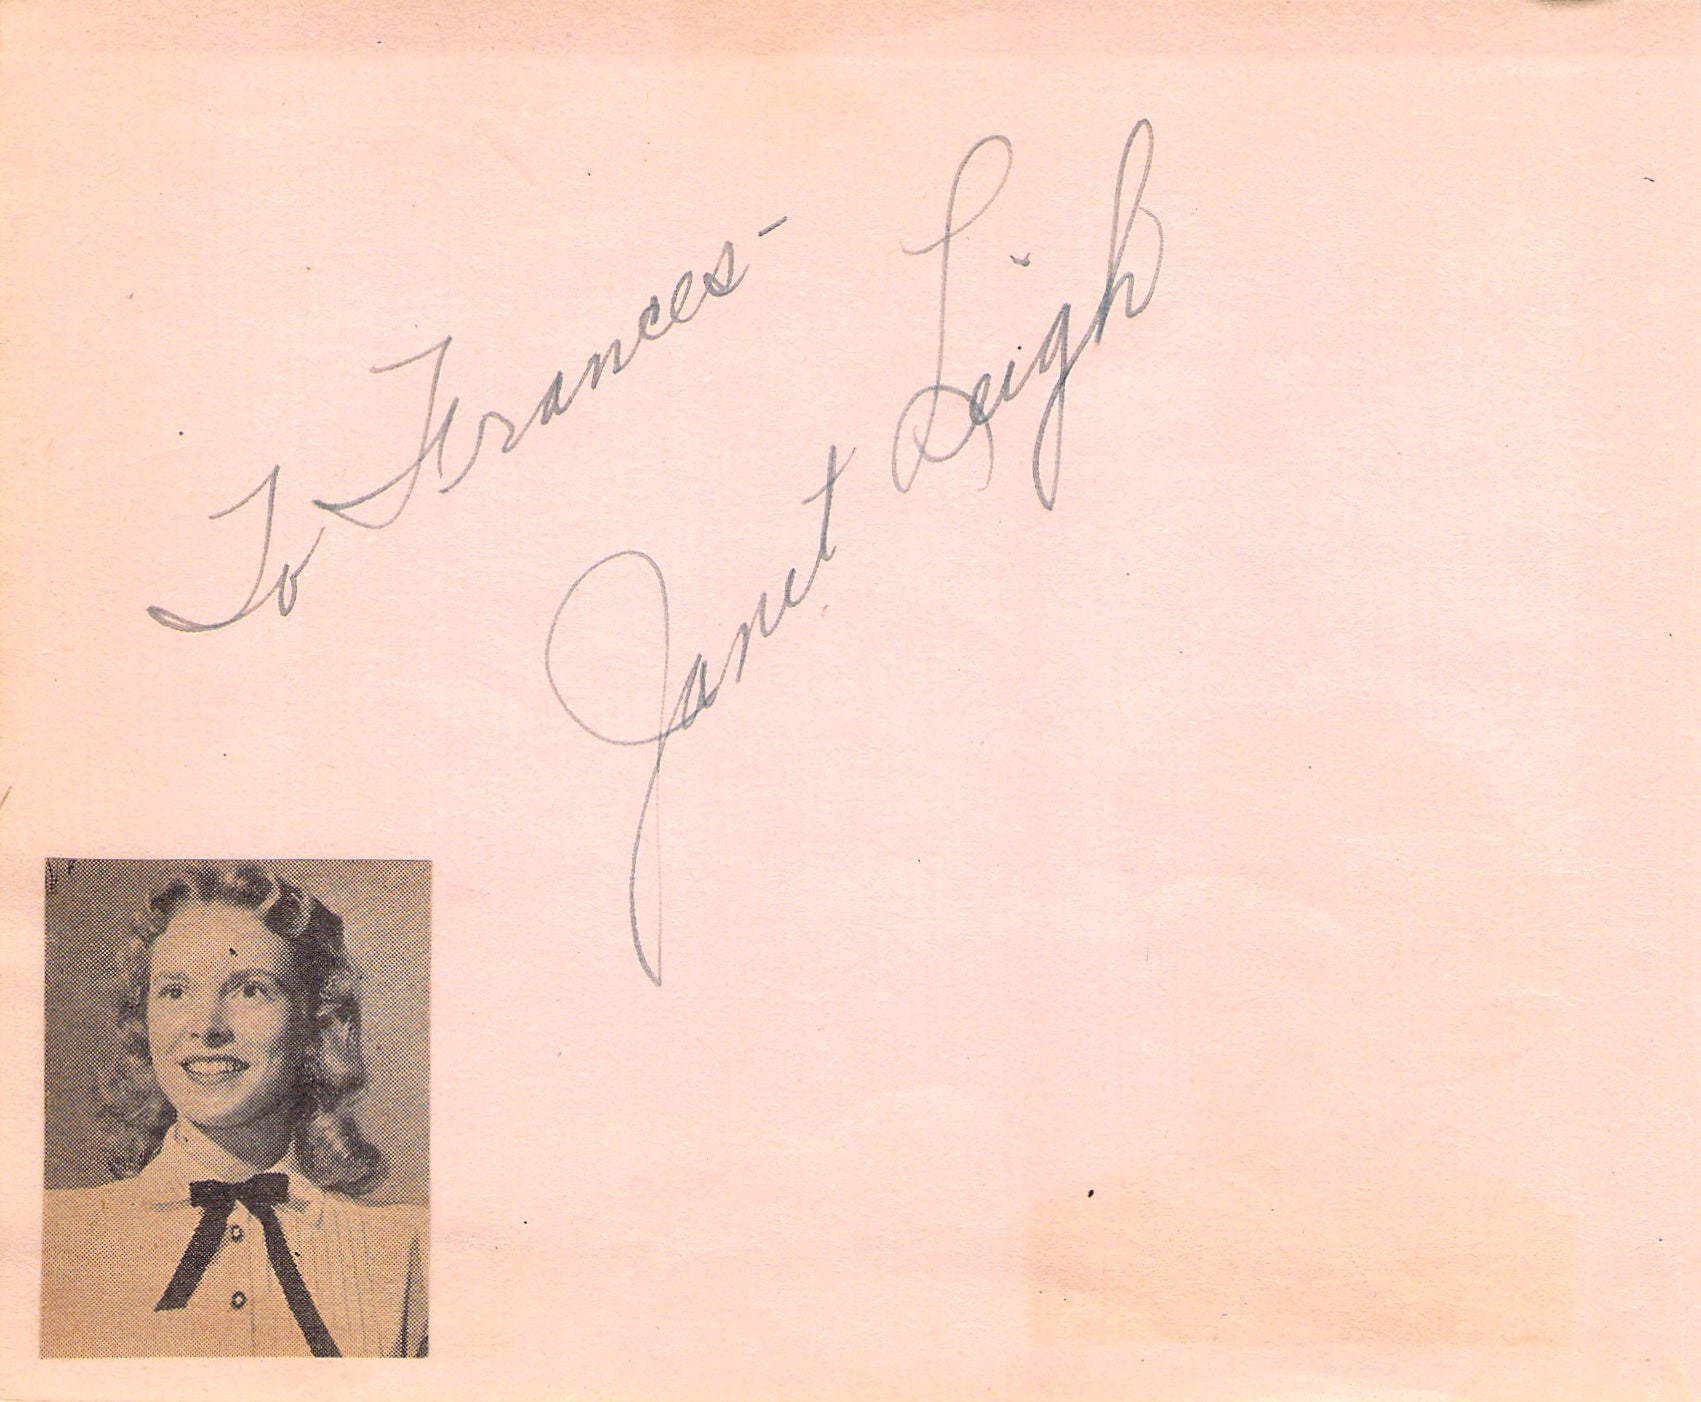 To Frances-
Janet Leigh